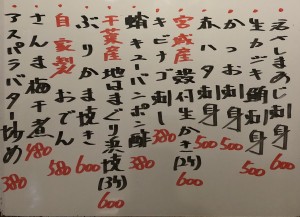 えべしめじ刺身 500
生カジキ鮪刺身 600
かつお刺身 500
赤ハタ刺身 500
宮城産 殻付生かき(2ケ) 600
キビナゴ刺し 380
蛸キューバンポン酢 380
千葉産 地はまぐり浜焼(3ケ) 600
ぶりかま焼き 600
自家製おでん 580
さんま梅干煮 480
アスパラバター炒め 380